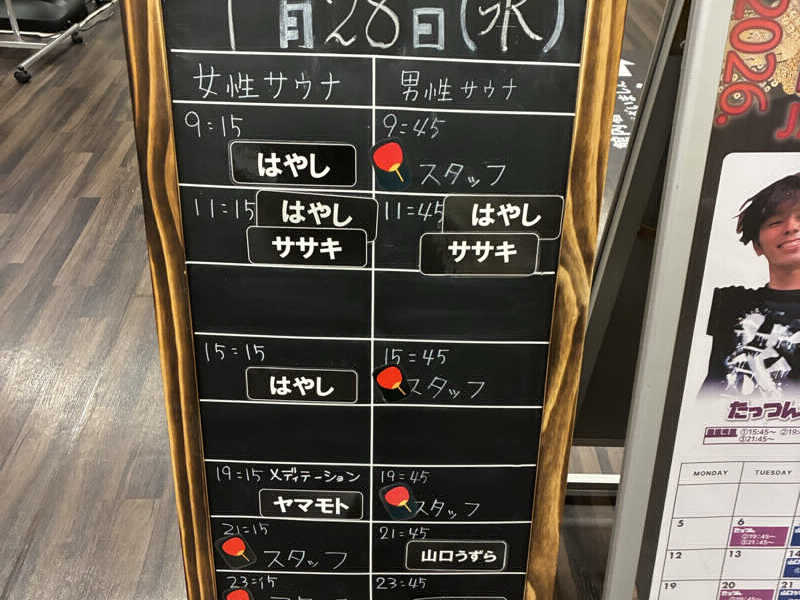 1月28日(水)
女性サウナ 男性サウナ
9:15 9:45
はやし スタッフ
11:15 はやし 11:45 はやし
ササキ ササキ
15:15 15:45
はやし スタッフ
19:15 メディテーション 19:45
ヤマモト スタッフ
21:15 21:45
スタッフ 山口うずら
23:15 23:45
2026.
たっつん
①15:45~
③21:45~
MONDAY TUESDAY
5 6
②19:45~
③21:45~
12 13 14
19 20 21